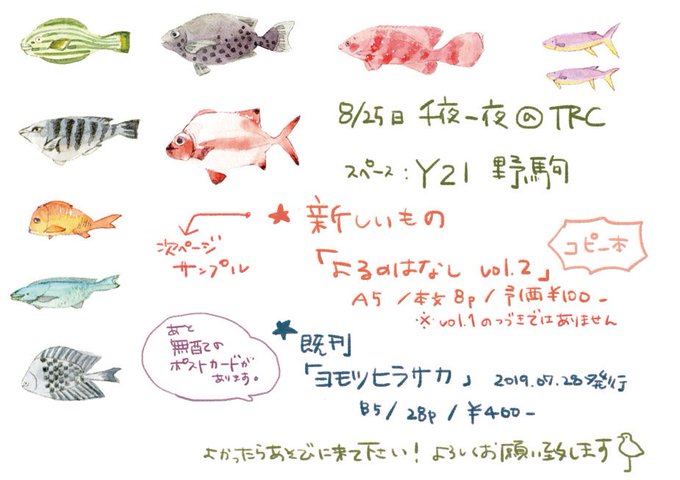 8/25日 千夜一夜 の TRC
スペース : Y21 野駒
★ 新しいもの
次ページ
サンプル
「よるのはなし vol.2」
コピー本
A5 / 本文 8p / 予価 ¥100-
※ vol.1のつづきではありません
あと
無配の
ポストカードが
あります。
★ 既刊
「ヨモツヒラサカ」 2019.07.28発行
B5 / 28p / ¥400-
よかったらあそびに来て下さい! よろしくお願い致します